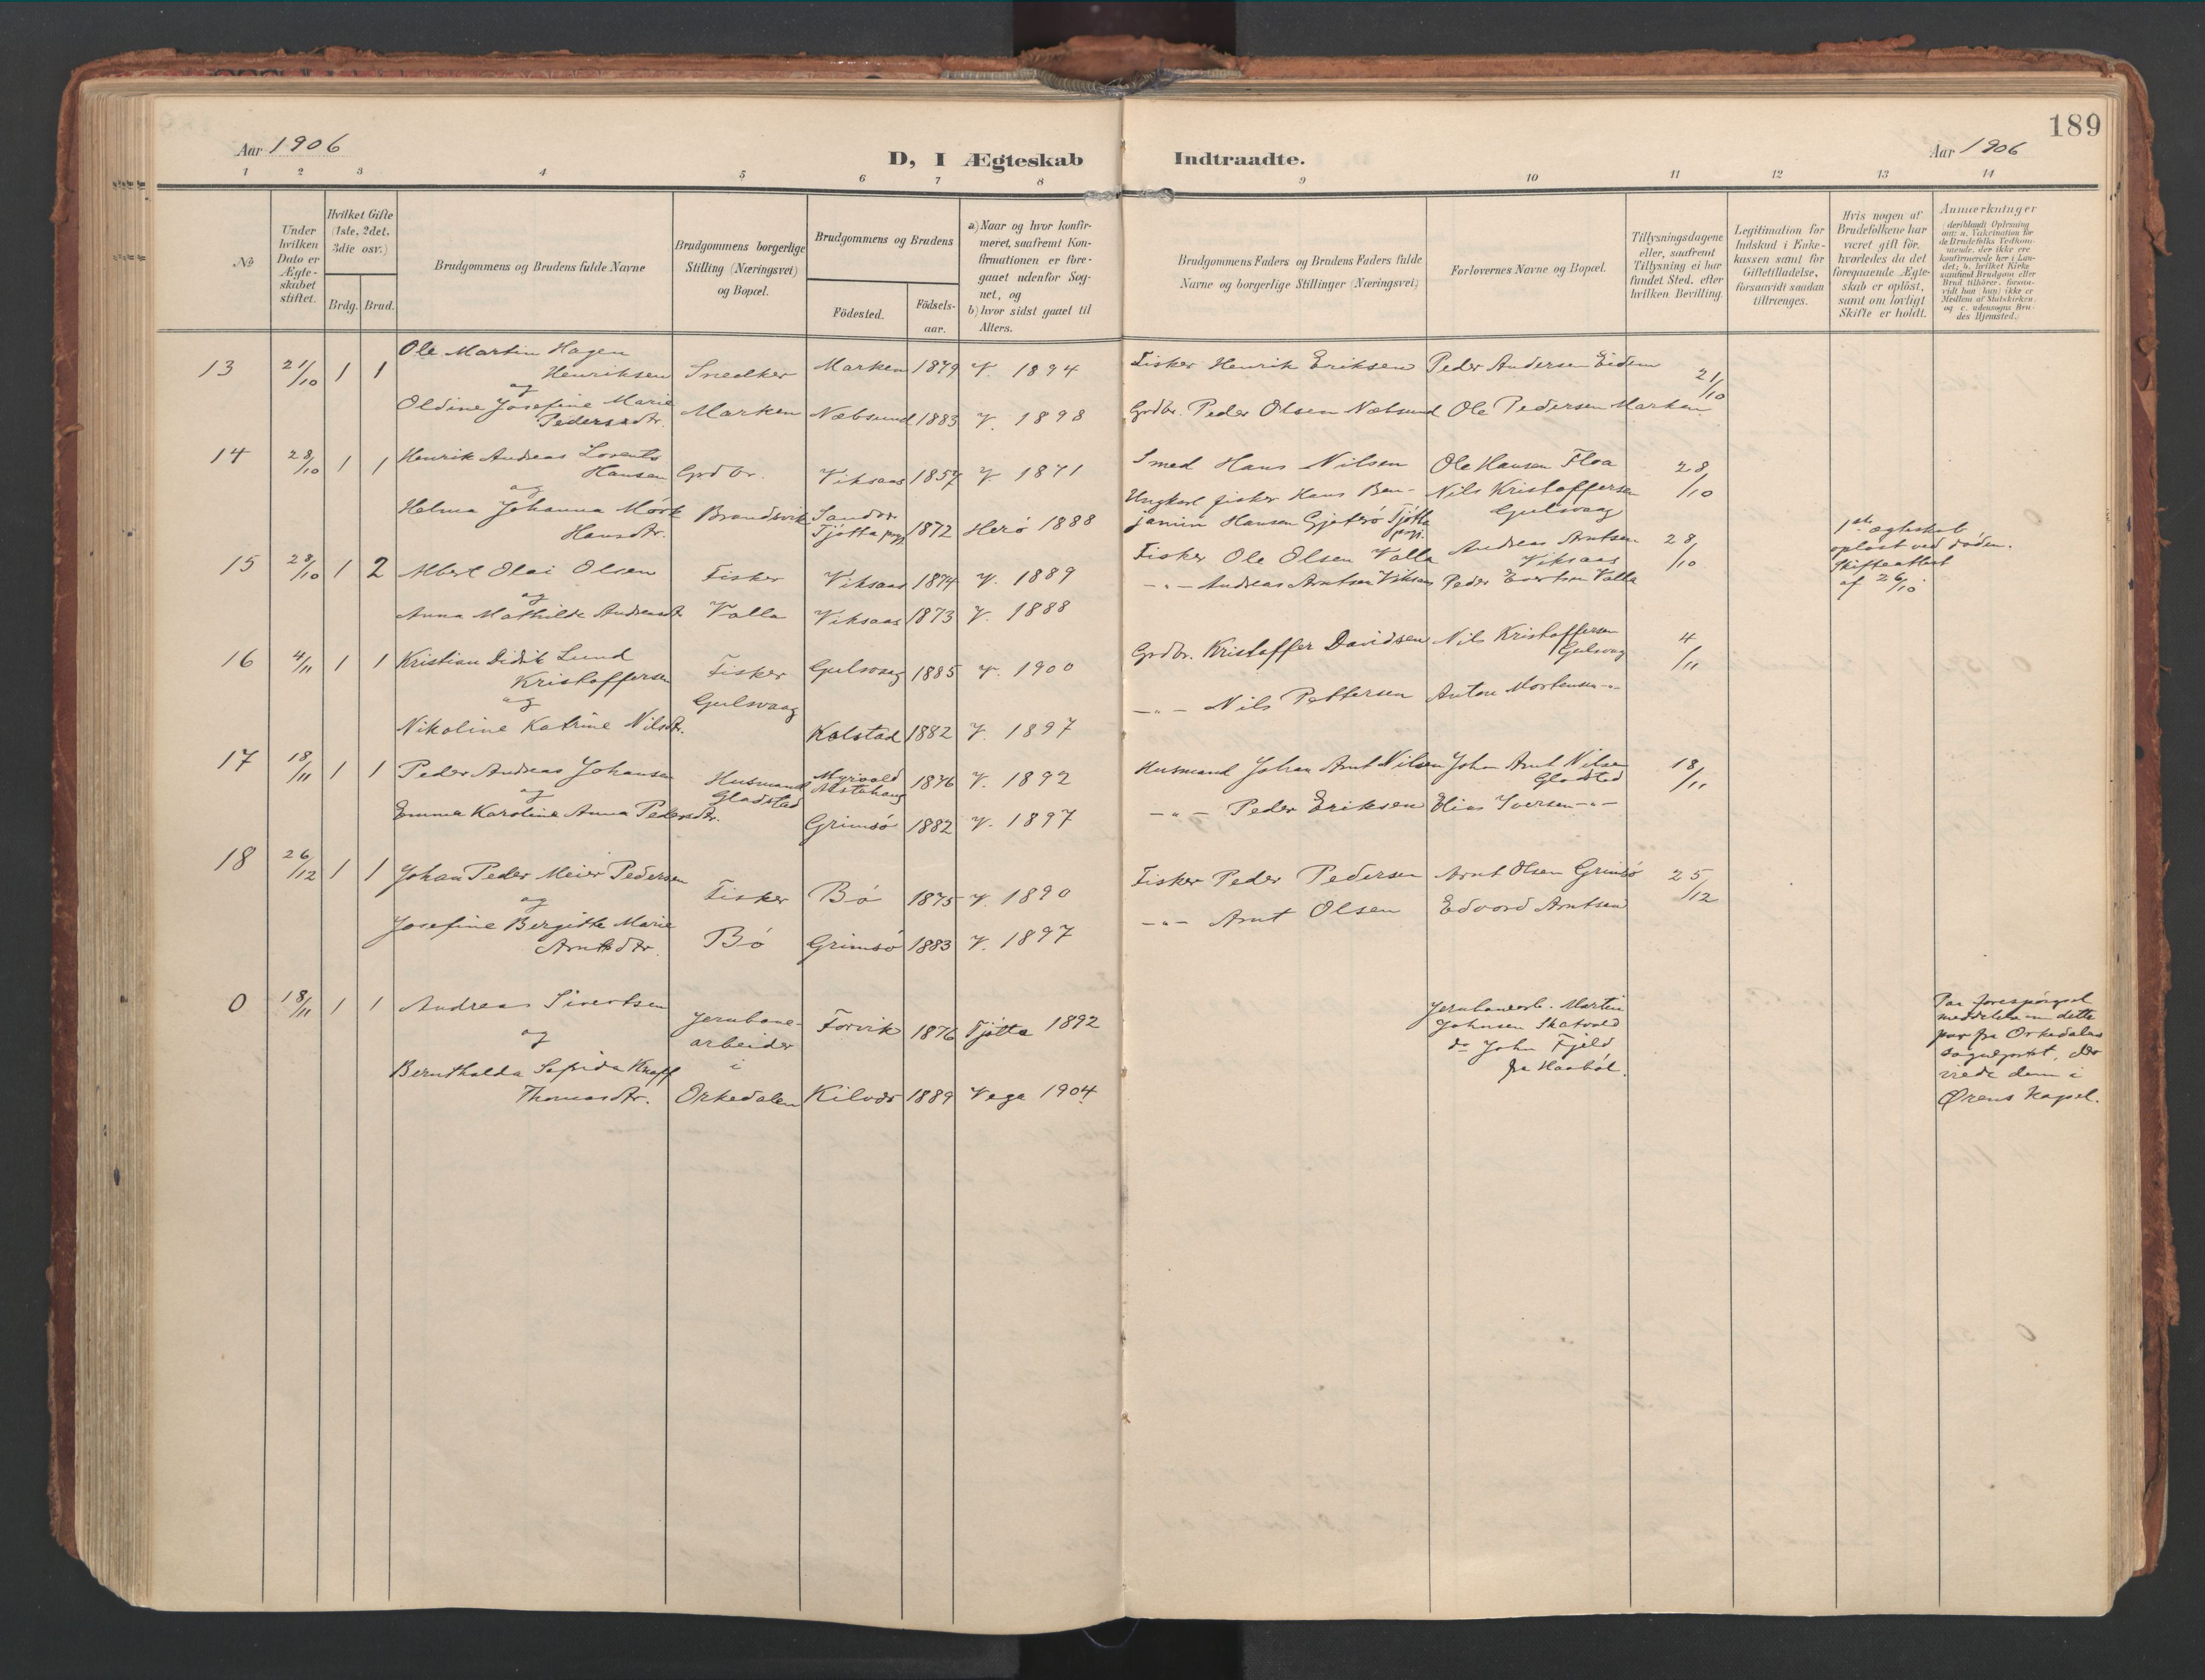 189
Aar 1906
D, I Ægteskab Indtraadte.
Aar 1906
1 2 3 4 5 6 7 8 9 10 11 12 13 14
№
Under hvilken Dato er Ægteskabet stiftet.
Hvilket Gifte (1ste, 2det, 3die osv.)
Brdg. Brud.
Brudgommens og Brudens fulde Navne
Brudgommens borgerlige Stilling (Næringsvei) og Bopæl.
Brudgommens og Brudens
Födested.
Födselsaar.
a) Naar og hvor konfirmeret, saafremt Konfirmationen er foregaaet udenfor Sognet, og
b) hvor sidst gaaet til Alters.
Brudgommens Faders og Brudens Faders fulde Navne og borgerlige Stillinger (Næringsvei)
Forlovernes Navne og Bopæl.
Tillysningsdagene eller, saafremt Tillysning ei har fundet Sted, efter hvilken Bevilling.
Legitimation for Indskud i Enkekassen samt for Giftetilladelse, forsaavidt saadan tiltrænges.
Hvis nogen af Brudefolkene har været gift för, hvorledes da det foregaaende Ægteskab er oplöst, samt om lovligt Skifte er holdt.
Anmærkninger
13 21/10 1 1 Ole Martin Hagen Henriksen Snedker Marken 1879 V. 1894 Fisker Henrik Eriksen Peder Andersen Eidem 21/10
og
Oldine Josefine Marie Pedersdtr. Marken Næbsund 1883 V. 1898 Grdbr. Peder Olsen Næbsund Ole Pedersen Marken
14 28/10 1 1 Henrik Andreas Lorents Hansen Grdbr. Viksaas 1857 V. 1871 Smed Hans Nilsen Ole Hansen Floa 28/10
og
Helma Johanna Mörk Hansdtr. Brandsvik Sandvær Tjötta pgj. 1872 Herö 1888 Ungkarl fisker Hans Benjamin Hansen Gjeterö Tjötta pgj. Nils Kristoffersen Gulsvaag
15 28/10 1 2 Albert Olai Olsen Fisker Viksaas 1874 V. 1889 Fisker Ole Olsen Valla Andreas Arntsen Viksaas 28/10 1ste ægteskab oplöst ved döden. Skifteattest af 26/10
og
Anna Mathilde Andreasdtr Valla Viksaas 1873 V. 1888 -"- Andreas Arntsen Viksaas Peder Evertsen Valla
16 4/11 1 1 Kristian Didrik Lund Kristoffersen Fisker Gulsvaag 1885 V. 1900 Grdbr. Kristoffer Davidsen Nils Kristoffersen Gulsvaag 4/11
og Gulsvaag
Nikoline Katrine Nilsdtr. Kalstad 1882 V. 1897 -"- Nils Pettersen Anton Mortensen -"-
17 18/11 1 1 Peder Andreas Johansen Husmand Myrvold Alstahaug 1876 V. 1892 Husmand Johan Arnt Nilsen Johan Arnt Nilsen Gladstad 18/11
og Gladstad
Emma Karoline Anna Pedersdtr. Grimsö 1882 V. 1897 -"- Peder Eriksen Elias Iversen -"-
18 26/12 1 1 Johan Peder Meier Pedersen Fisker Bö 1875 V. 1890 Fisker Peder Pedersen Arnt Olsen Grimsö 25/12
og
Josefine Bergitte Marie Arntsdtr. Bö Grimsö 1883 V. 1897 -"- Arnt Olsen Edvard Arntsen
0 18/11 1 1 Andreas Sivertsen Jernbanearbeider Forvik 1876 Tjötta 1892 Jernbanearb. Martin Johnsen Skatvold
og i do John Fjeld fra Haaböl.
Bernthalda Sefrida Knoff Thomasdtr. Orkedalen Kilvær 1889 Vega 1904
Paa forespörgsel
meddeles om dette
par fra Orkedalens
sogneprest, der
viede dem i
Ørens kapel.